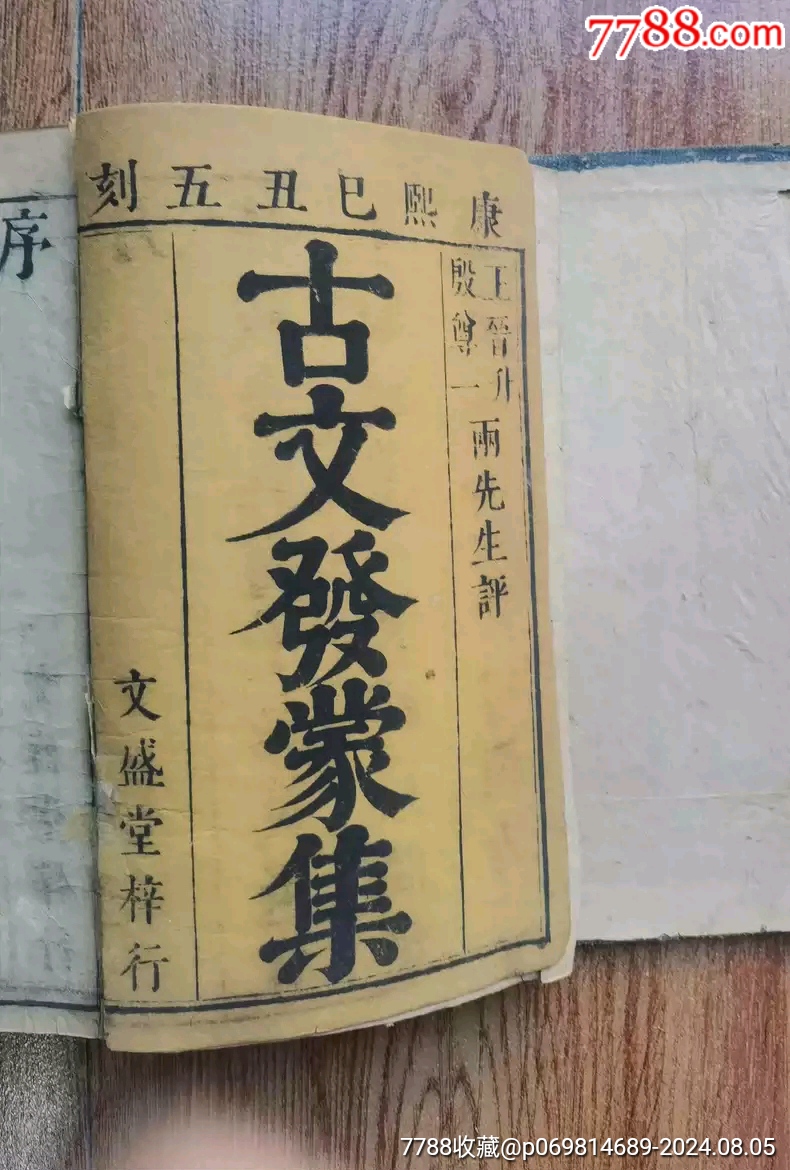 7788.com
康熙已丑五刻
王晉升
殷尊一
兩先生評
古文發蒙集
文盛堂梓行
序
7788收藏@p069814689-2024.08.05